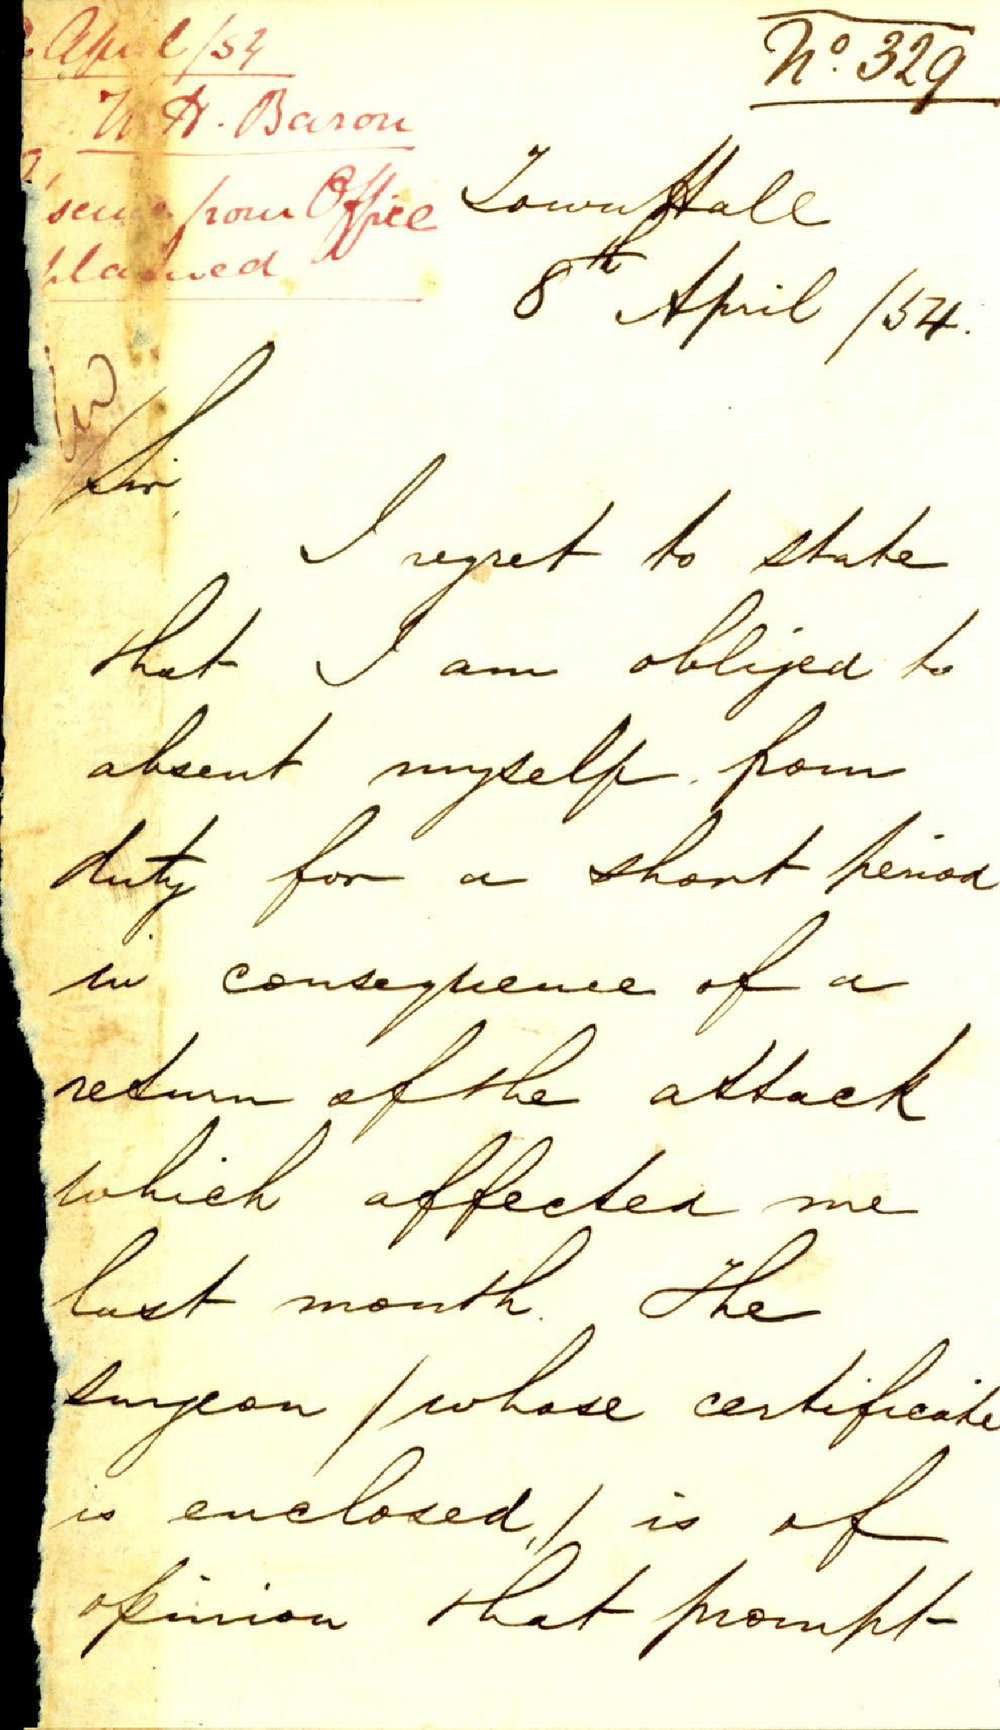 April /54
W. H. Baron
from Office
No. 329
Town Hall
8th April /54.
Sir,
I regret to state
that I am obliged to
absent myself from
duty for a short period
in consequence of a
return of the attack
which affected me
last month. The
surgeon / whose certificate
is enclosed, / is of
opinion that prompt